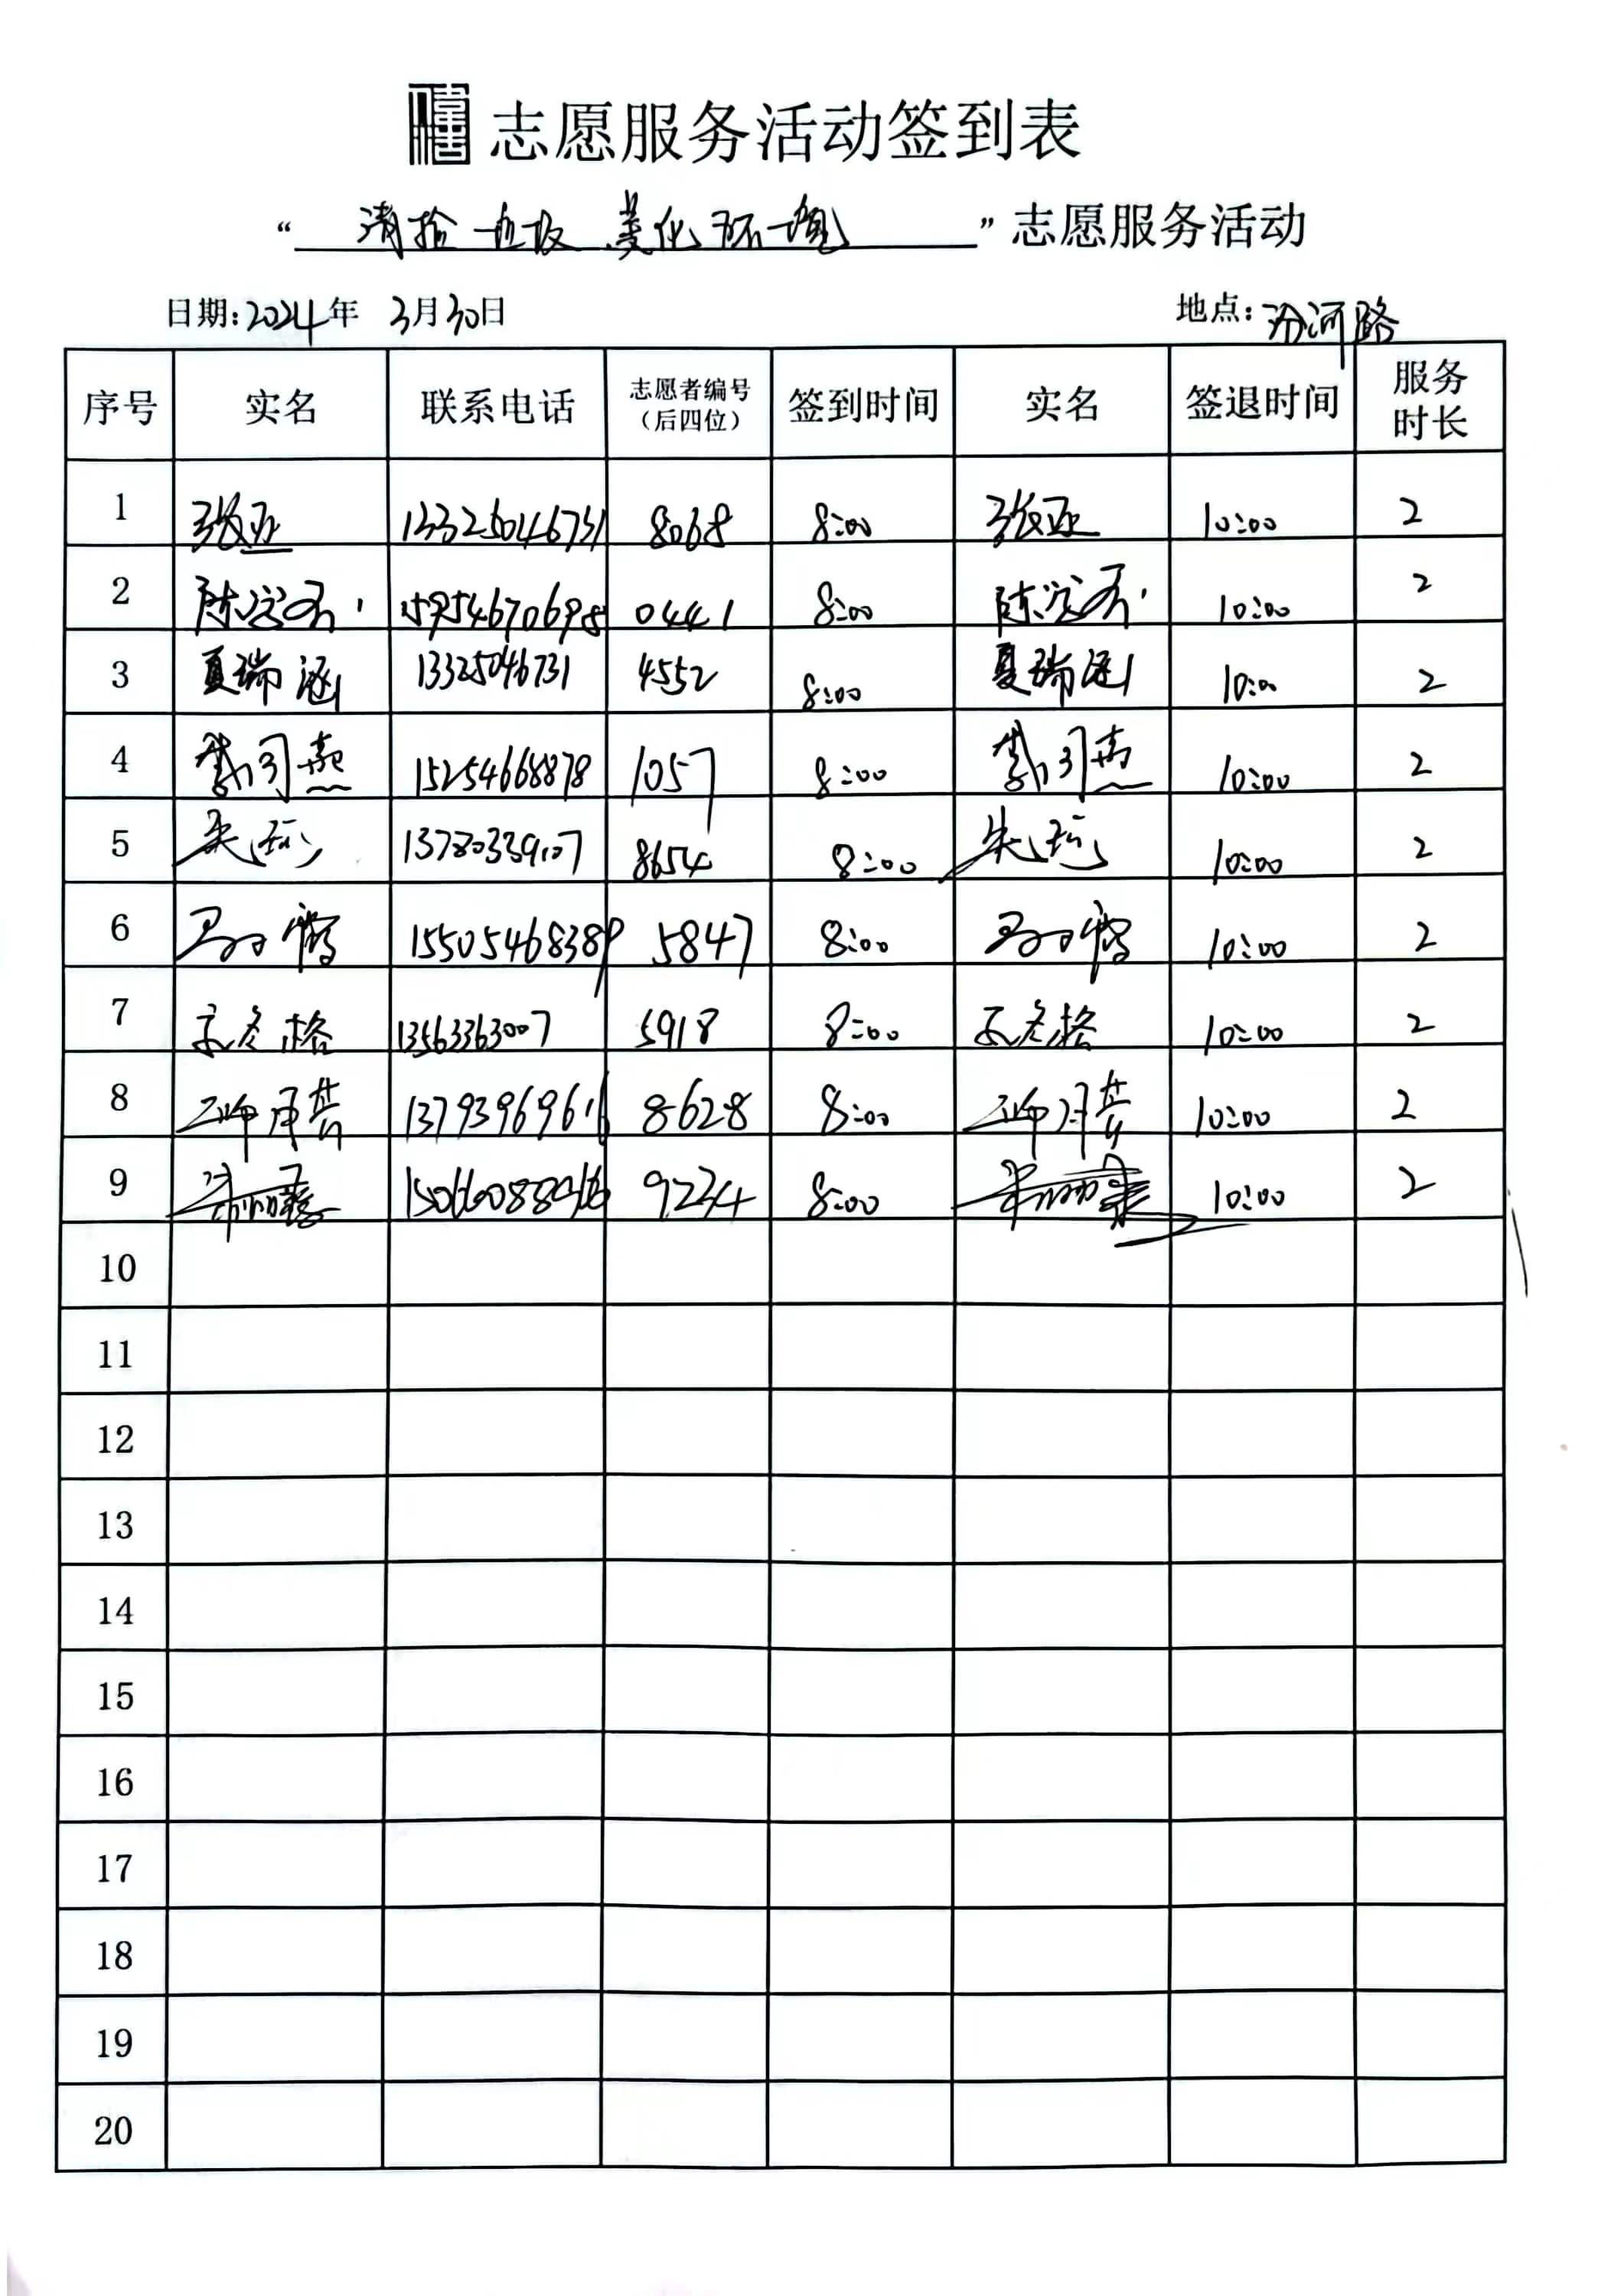 志愿服务活动签到表
“清捡垃圾 美化环境”志愿服务活动
日期:2024年 3月30日 地点:汾河路
序号 实名 联系电话 志愿者编号（后四位） 签到时间 实名 签退时间 服务时长
1 张亚 13325046731 8068 8:00 张亚 10:00 2
2 15954670698 0441 8:00 10:00 2
3 夏瑞涵 13325046731 4552 8:00 夏瑞涵 10:00 2
4 15254668878 1057 8:00 10:00 2
5 8654 8:00 10:00 2
6 15505468389 5847 8:00 10:00 2
7 13563363007 5918 8:00 10:00 2
8 13793969616 8628 8:00 10:00 2
9 9234 8:00 10:00 2
10
11
12
13
14
15
16
17
18
19
20